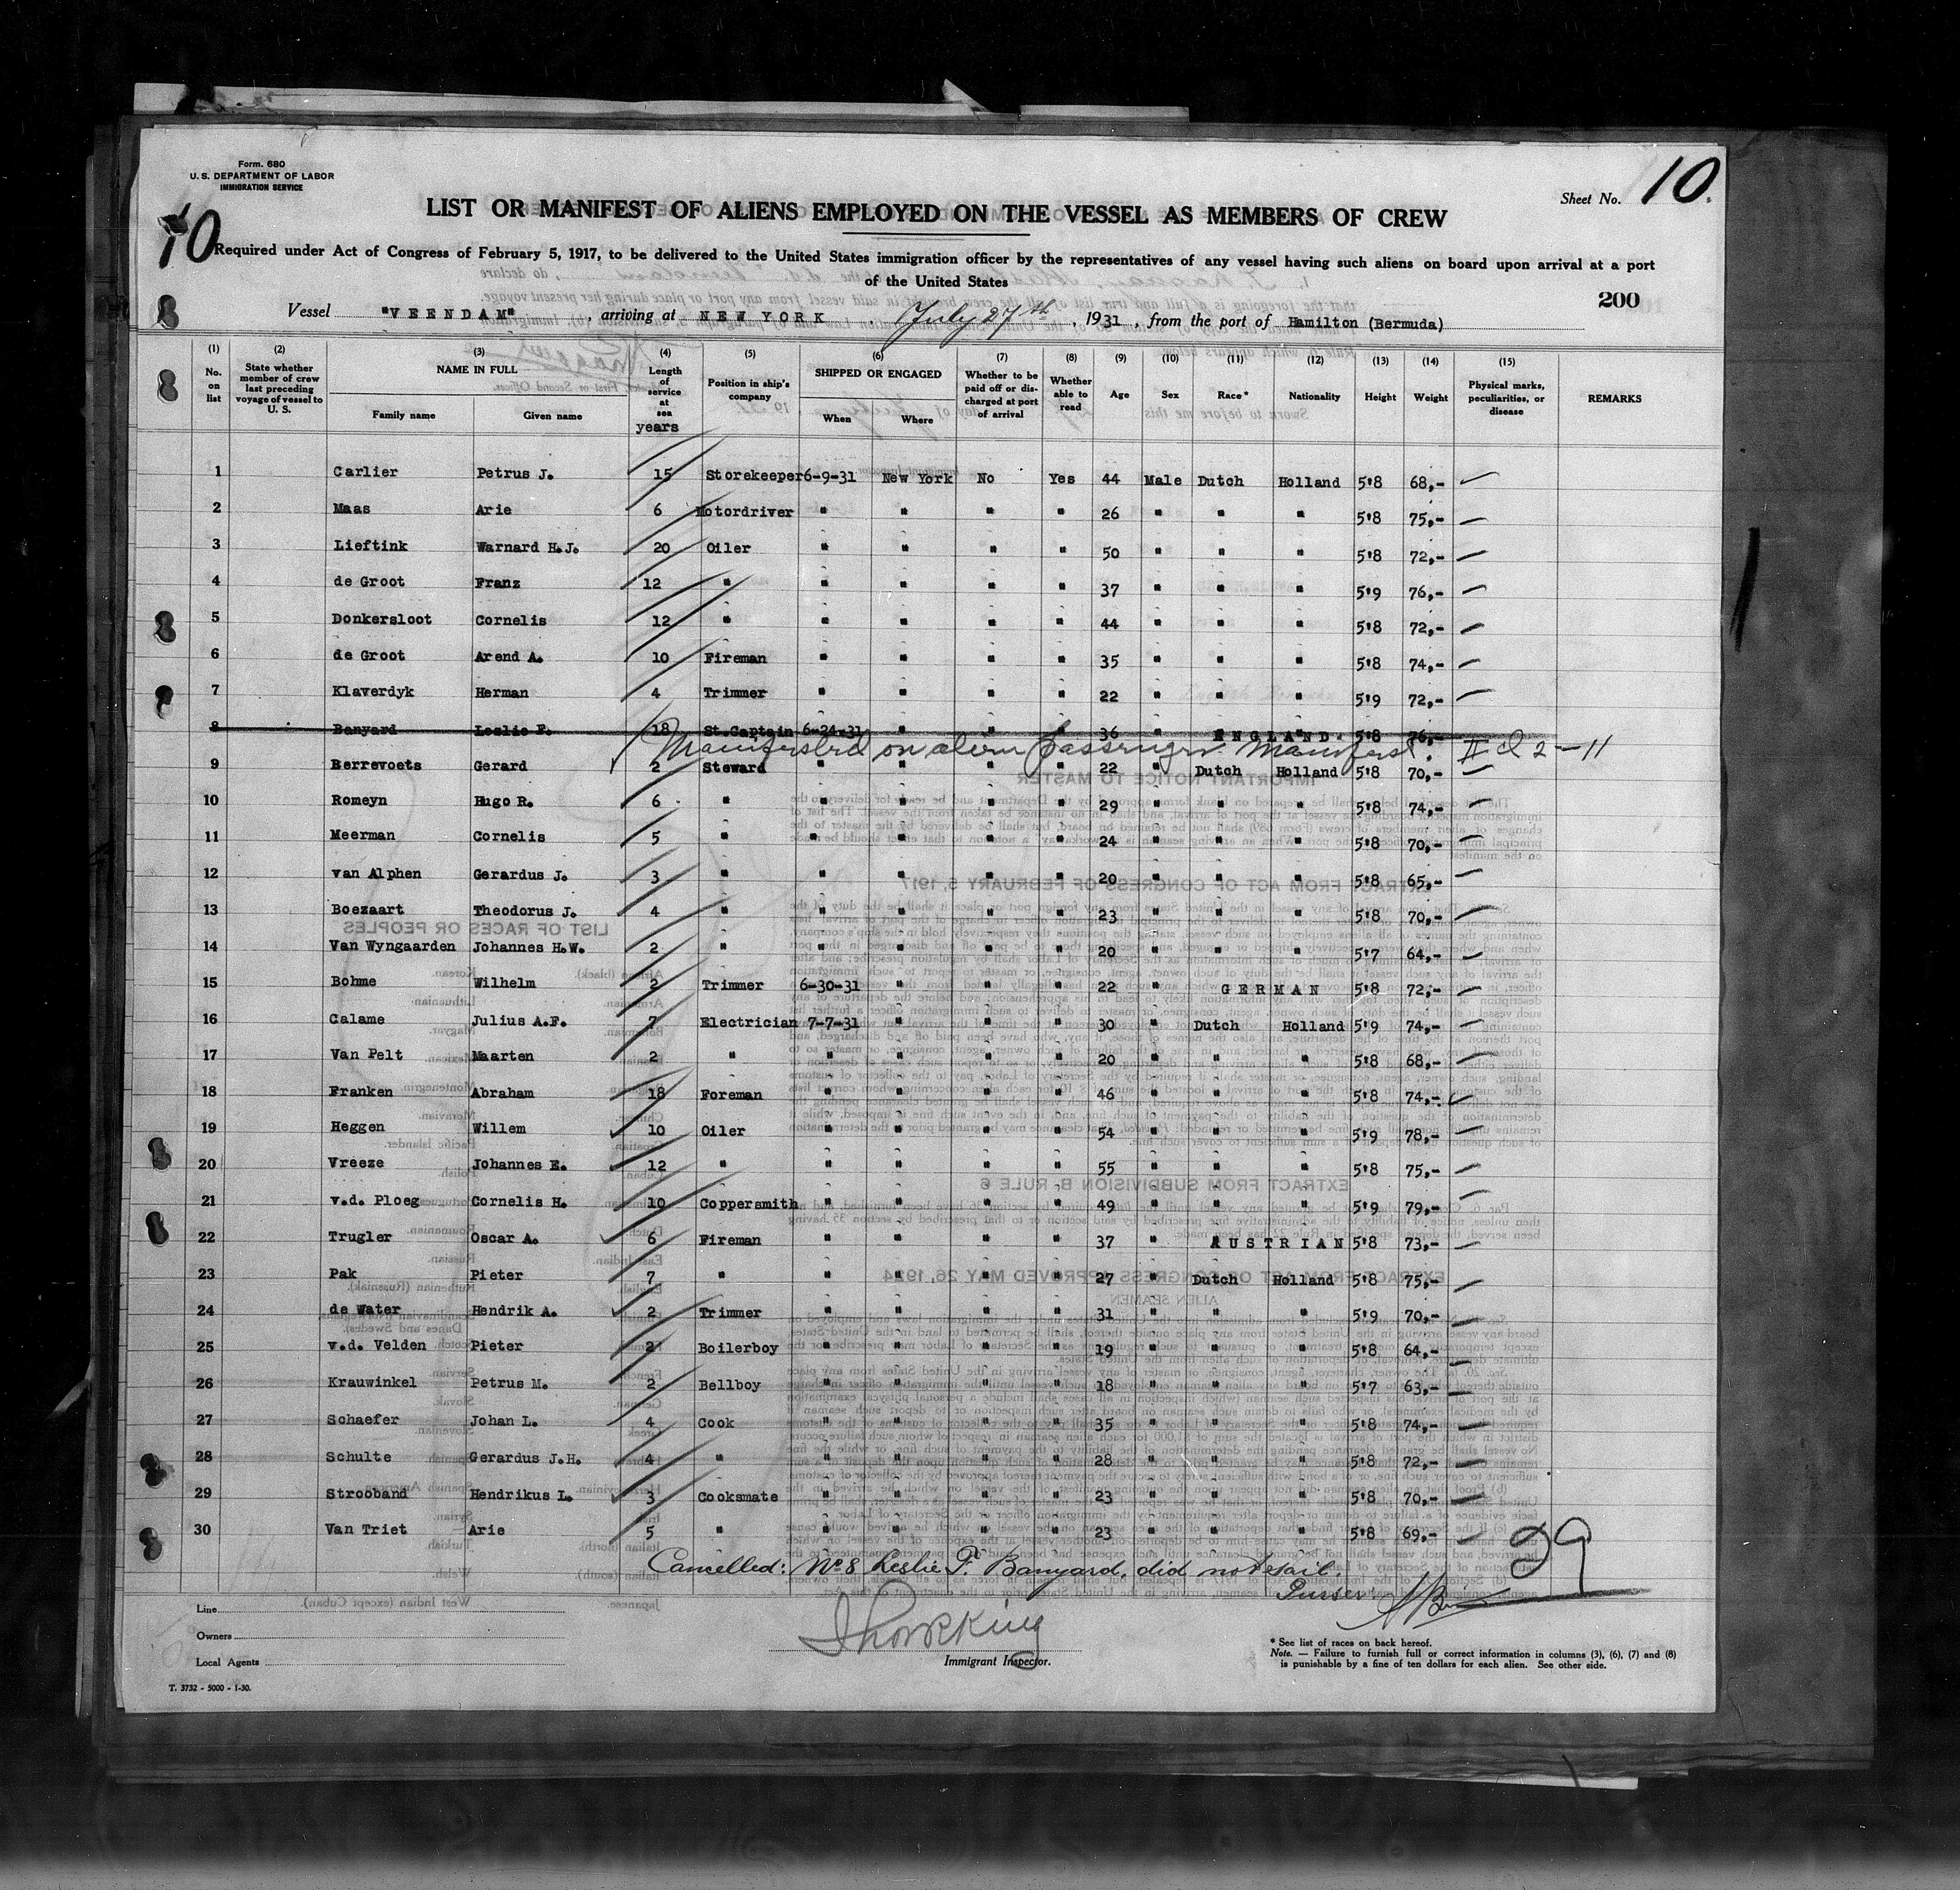 Form. 680
U. S. DEPARTMENT OF LABOR
IMMIGRATION SERVICE
Sheet No. 10.
10
LIST OR MANIFEST OF ALIENS EMPLOYED ON THE VESSEL AS MEMBERS OF CREW
Required under Act of Congress of February 5, 1917, to be delivered to the United States immigration officer by the representatives of any vessel having such aliens on board upon arrival at a port
of the United States
200
Vessel "VEENDAM", arriving at NEW YORK, July 27th, 1931, from the port of Hamilton (Bermuda)
(1) No. on list (2) State whether member of crew last preceding voyage of vessel to U. S. (3) NAME IN FULL Family name Given name (4) Length of service at sea years (5) Position in ship's company (6) SHIPPED OR ENGAGED When Where (7) Whether to be paid off or discharged at port of arrival (8) Whether able to read (9) Age (10) Sex (11) Race * (12) Nationality (13) Height (14) Weight (15) Physical marks, peculiarities, or disease REMARKS
1 Carlier Petrus J. 15 Storekeeper 6-9-31 New York No Yes 44 Male Dutch Holland 5'8 68,-
2 Maas Arie 6 Motordriver " " " " 26 " " " 5'8 75,-
3 Lieftink Warnard H.J. 20 Oiler " " " " 50 " " " 5'8 72,-
4 de Groot Franz 12 " " " " " 37 " " " 5'9 76,-
5 Donkersloot Cornelis 12 " " " " " 44 " " " 5'8 72,-
6 de Groot Arend A. 10 Fireman " " " " 35 " " " 5'8 74,-
7 Klaverdyk Herman 4 Trimmer " " " " 22 " " " 5'9 72,-
8 Banyard Leslie F. 18 St.Captain 6-24-31 " " " 36 " ENGLAND. 5'8 76,-
Manifested on alien passenger Manifest. II cl 2-11
9 Berrevoets Gerard 2 Steward " " " " 22 " Dutch Holland 5'8 70,-
10 Romeyn Hugo R. 6 " " " " " 29 " " " 5'8 74,-
11 Meerman Cornelis 5 " " " " " 24 " " " 5'8 70,-
12 van Alphen Gerardus J. 3 " " " " " 20 " " " 5'8 65,-
13 Boezaart Theodorus J. 4 " " " " " 23 " " " 5'8 70,-
14 Van Wyngaarden Johannes H.W. 2 " " " " " 20 " " " 5'7 64,-
15 Bohme Wilhelm 2 Trimmer 6-30-31 " " " 22 " GERMAN 5'8 72,-
16 Calame Julius A.F. 7 Electrician 7-7-31 " " " 30 " Dutch Holland 5'9 74,-
17 Van Pelt Maarten 2 " " " " " 20 " " " 5'8 68,-
18 Franken Abraham 18 Foreman " " " " 46 " " " 5'8 74,-
19 Heggen Willem 10 Oiler " " " " 54 " " " 5'9 78,-
20 Vreeze Johannes E. 12 " " " " " 55 " " " 5'8 75,-
21 v.d. Ploeg Cornelis H. 10 Coppersmith " " " " 49 " " " 5'9 79,-
22 Trugler Oscar A. 6 Fireman " " " " 37 " AUSTRIAN 5'8 73,-
23 Pak Pieter 7 " " " " " 27 " Dutch Holland 5'8 75,-
24 de Water Hendrik A. 2 Trimmer " " " " 31 " " " 5'9 70,-
25 v.d. Velden Pieter 2 Boilerboy " " " " 19 " " " 5'8 64,-
26 Krauwinkel Petrus M. 2 Bellboy " " " " 18 " " " 5'7 63,-
27 Schaefer Johan L. 4 Cook " " " " 35 " " " 5'8 74,-
28 Schulte Gerardus J.H. 4 " " " " " 28 " " " 5'8 72,-
29 Strooband Hendrikus L. 3 Cooksmate " " " " 23 " " " 5'8 70,-
30 Van Triet Arie 5 " " " " " 23 " " " 5'8 69,-
29
Cancelled: No 8 Leslie F. Banyard, did not sail.
Purser
Line
Owners
Local Agents
Immigrant Inspector.
* See list of races on back hereof.
Note. — Failure to furnish full or correct information in columns (3), (6), (7) and (8)
is punishable by a fine of ten dollars for each alien. See other side.
T. 3732 - 5000 - 1-30.